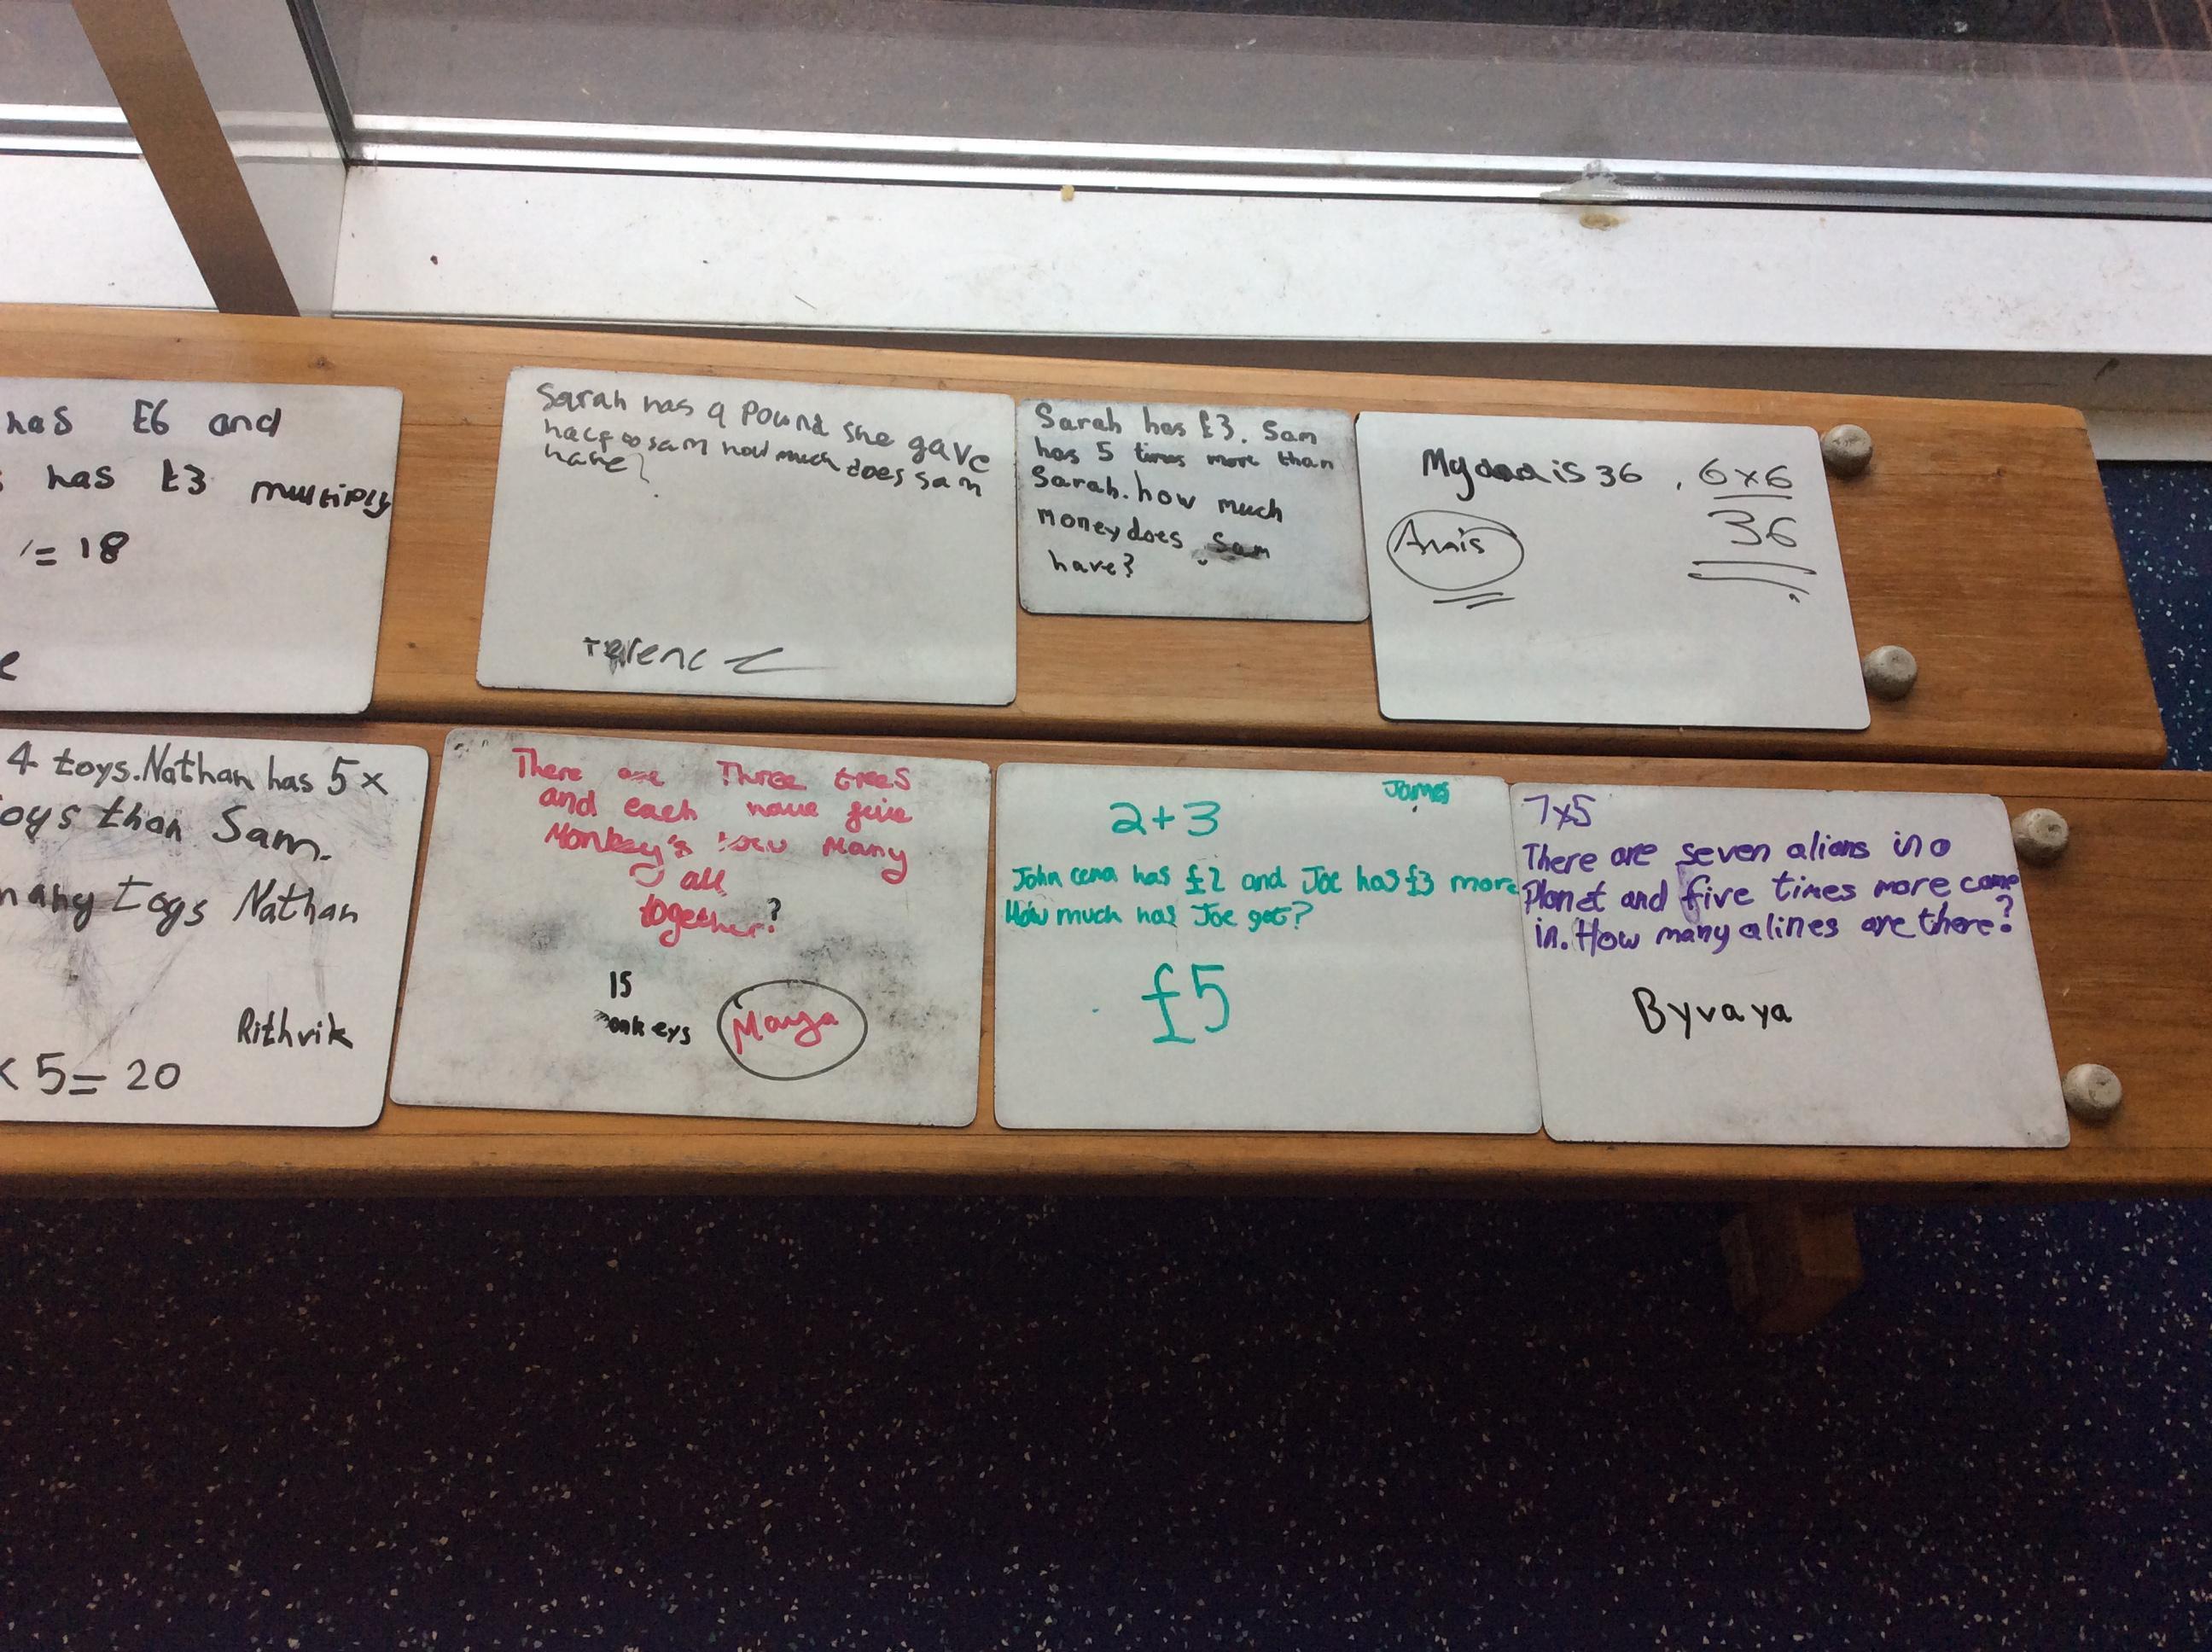 has £6 and
has £3 multiply
= 18
Sarah has a Pound she gave
half to sam how much does sam
have?
Terence
Sarah has £3. Sam
has 5 times more than
Sarah. how much
money does Sam
have?
My dad is 36
6x6
36
Anais
4 toys. Nathan has 5x
toys than Sam.
many toys Nathan
Rithvik
x 5 = 20
There are Three trees
and each have five
Monkey's how Many
all
together?
15
monkeys
Maya
James
2+3
John cena has £2 and Joe has £3 more
How much has Joe got?
£5
7x5
There are seven alians in a
Planet and five times more came
in. How many alines are there?
Byvaya